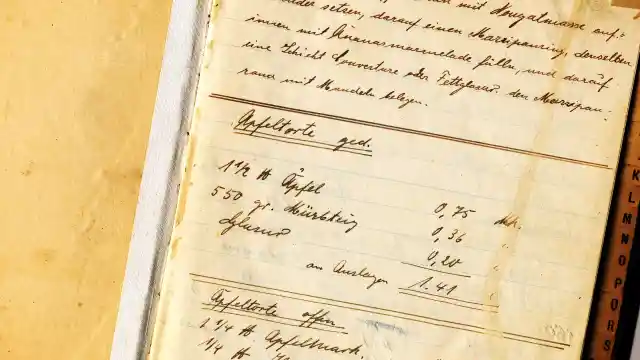 mit Nougatmasse auf=
ander setzen, darauf einen Marzipanring, denselben
innen mit Ananasmarmelade füllen, und darauf
eine Schicht Couverture oder Fettglasur. den Marzipan-
rand mit Mandeln belegen.
Äpfeltorte ged.
1 1/2 ℔ Äpfel 0,75 Mk.
550 gr. Mürbteig 0,36 "
Glasur 0,20 "
an Auslagen 1.41 "
Äpfeltorte offen
2 1/4 ℔ Apfelmark.
1/4 ℔
K
L
M
N
O
P
Q
R
S